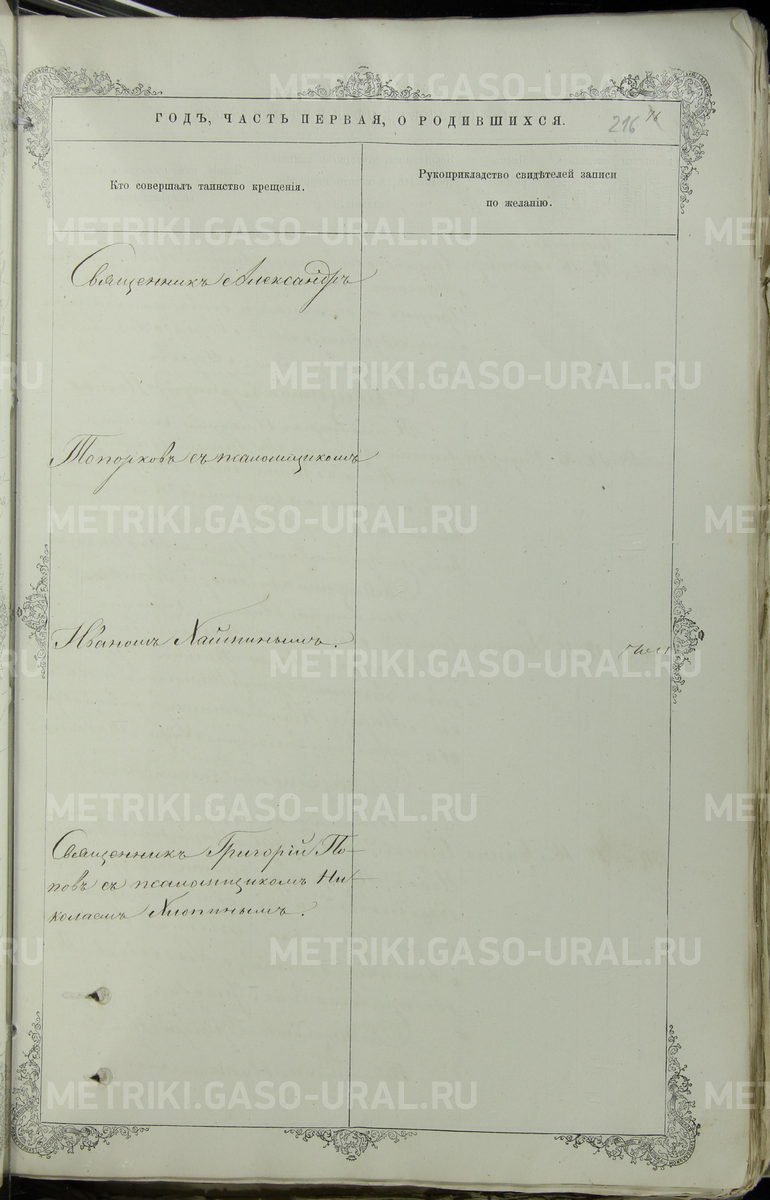 ГОДЪ, ЧАСТЬ ПЕРВАЯ, О РОДИВШИХСЯ.
216
76
Кто совершалъ таинство крещенія.
Рукоприкладство свидѣтелей записи
по желанію.
Священникъ Александръ
Топорковъ съ псаломщикомъ
Иваномъ
Священникъ Григорій По-
повъ съ псаломщикомъ Ни-
колаемъ Хлопинымъ.
METRIKI.GASO-URAL.RU